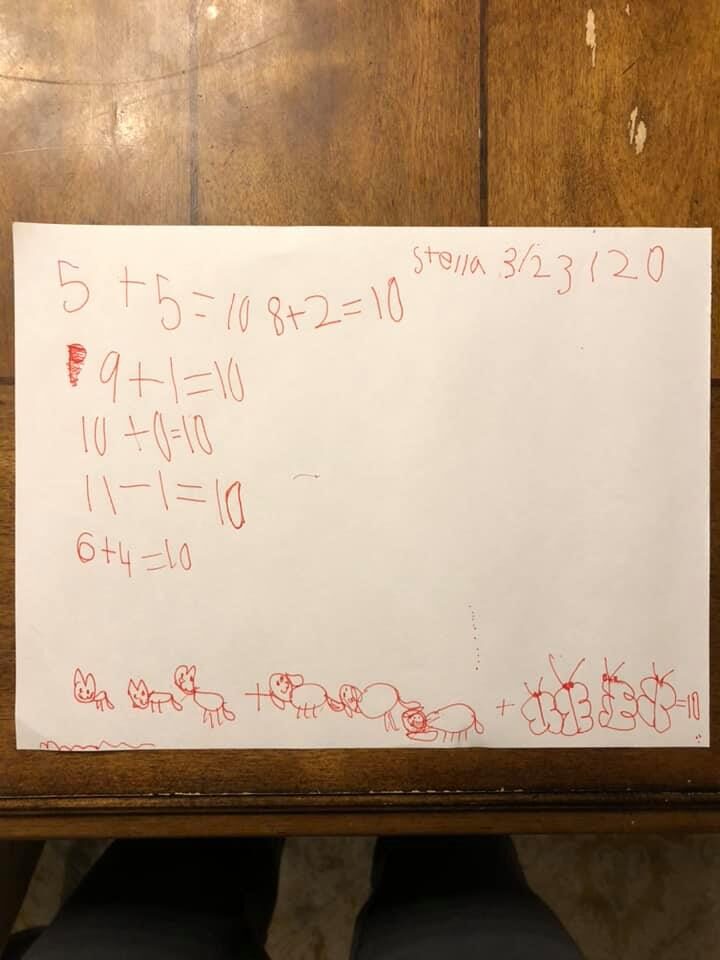 stella 3/23/20
5+5=10 8+2=10
9+1=10
10+0=10
11-1=10
6+4=10
+ + =10